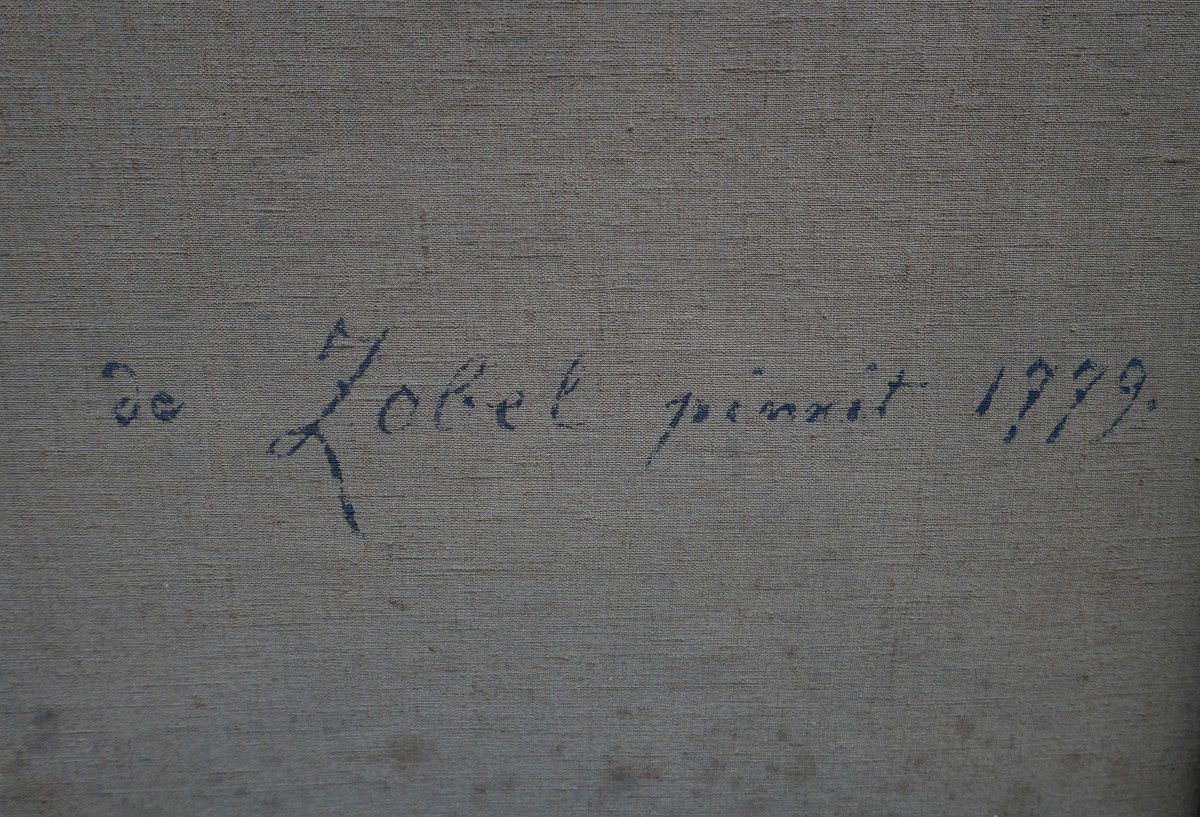 de Zobel pinxit 1779.